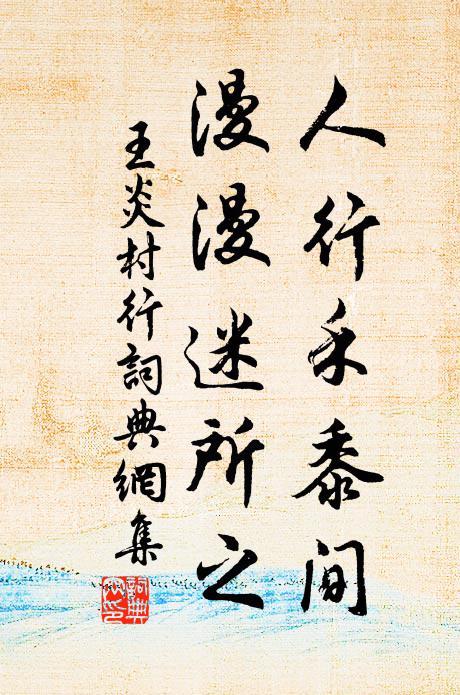 人行禾黍間
漫漫迷所之
王炎村行詞典網集